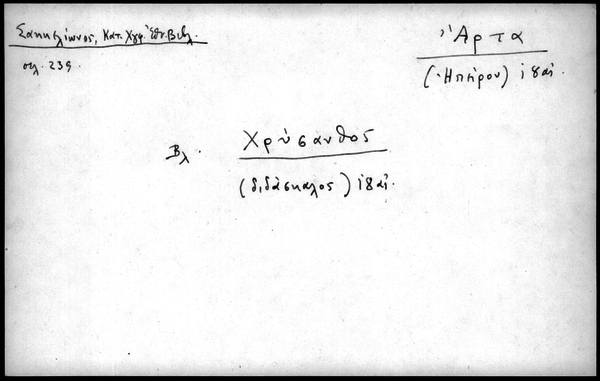 Σακκελίωνος, Κατ. Χγφ. Ἐθν. Βιβλ.
σελ. 239.
Ἄρτα
(Ἠπείρου) ιη αἰ.
Βλ. Χρύσανθος
(διδάσκαλος) ιη αἰ.